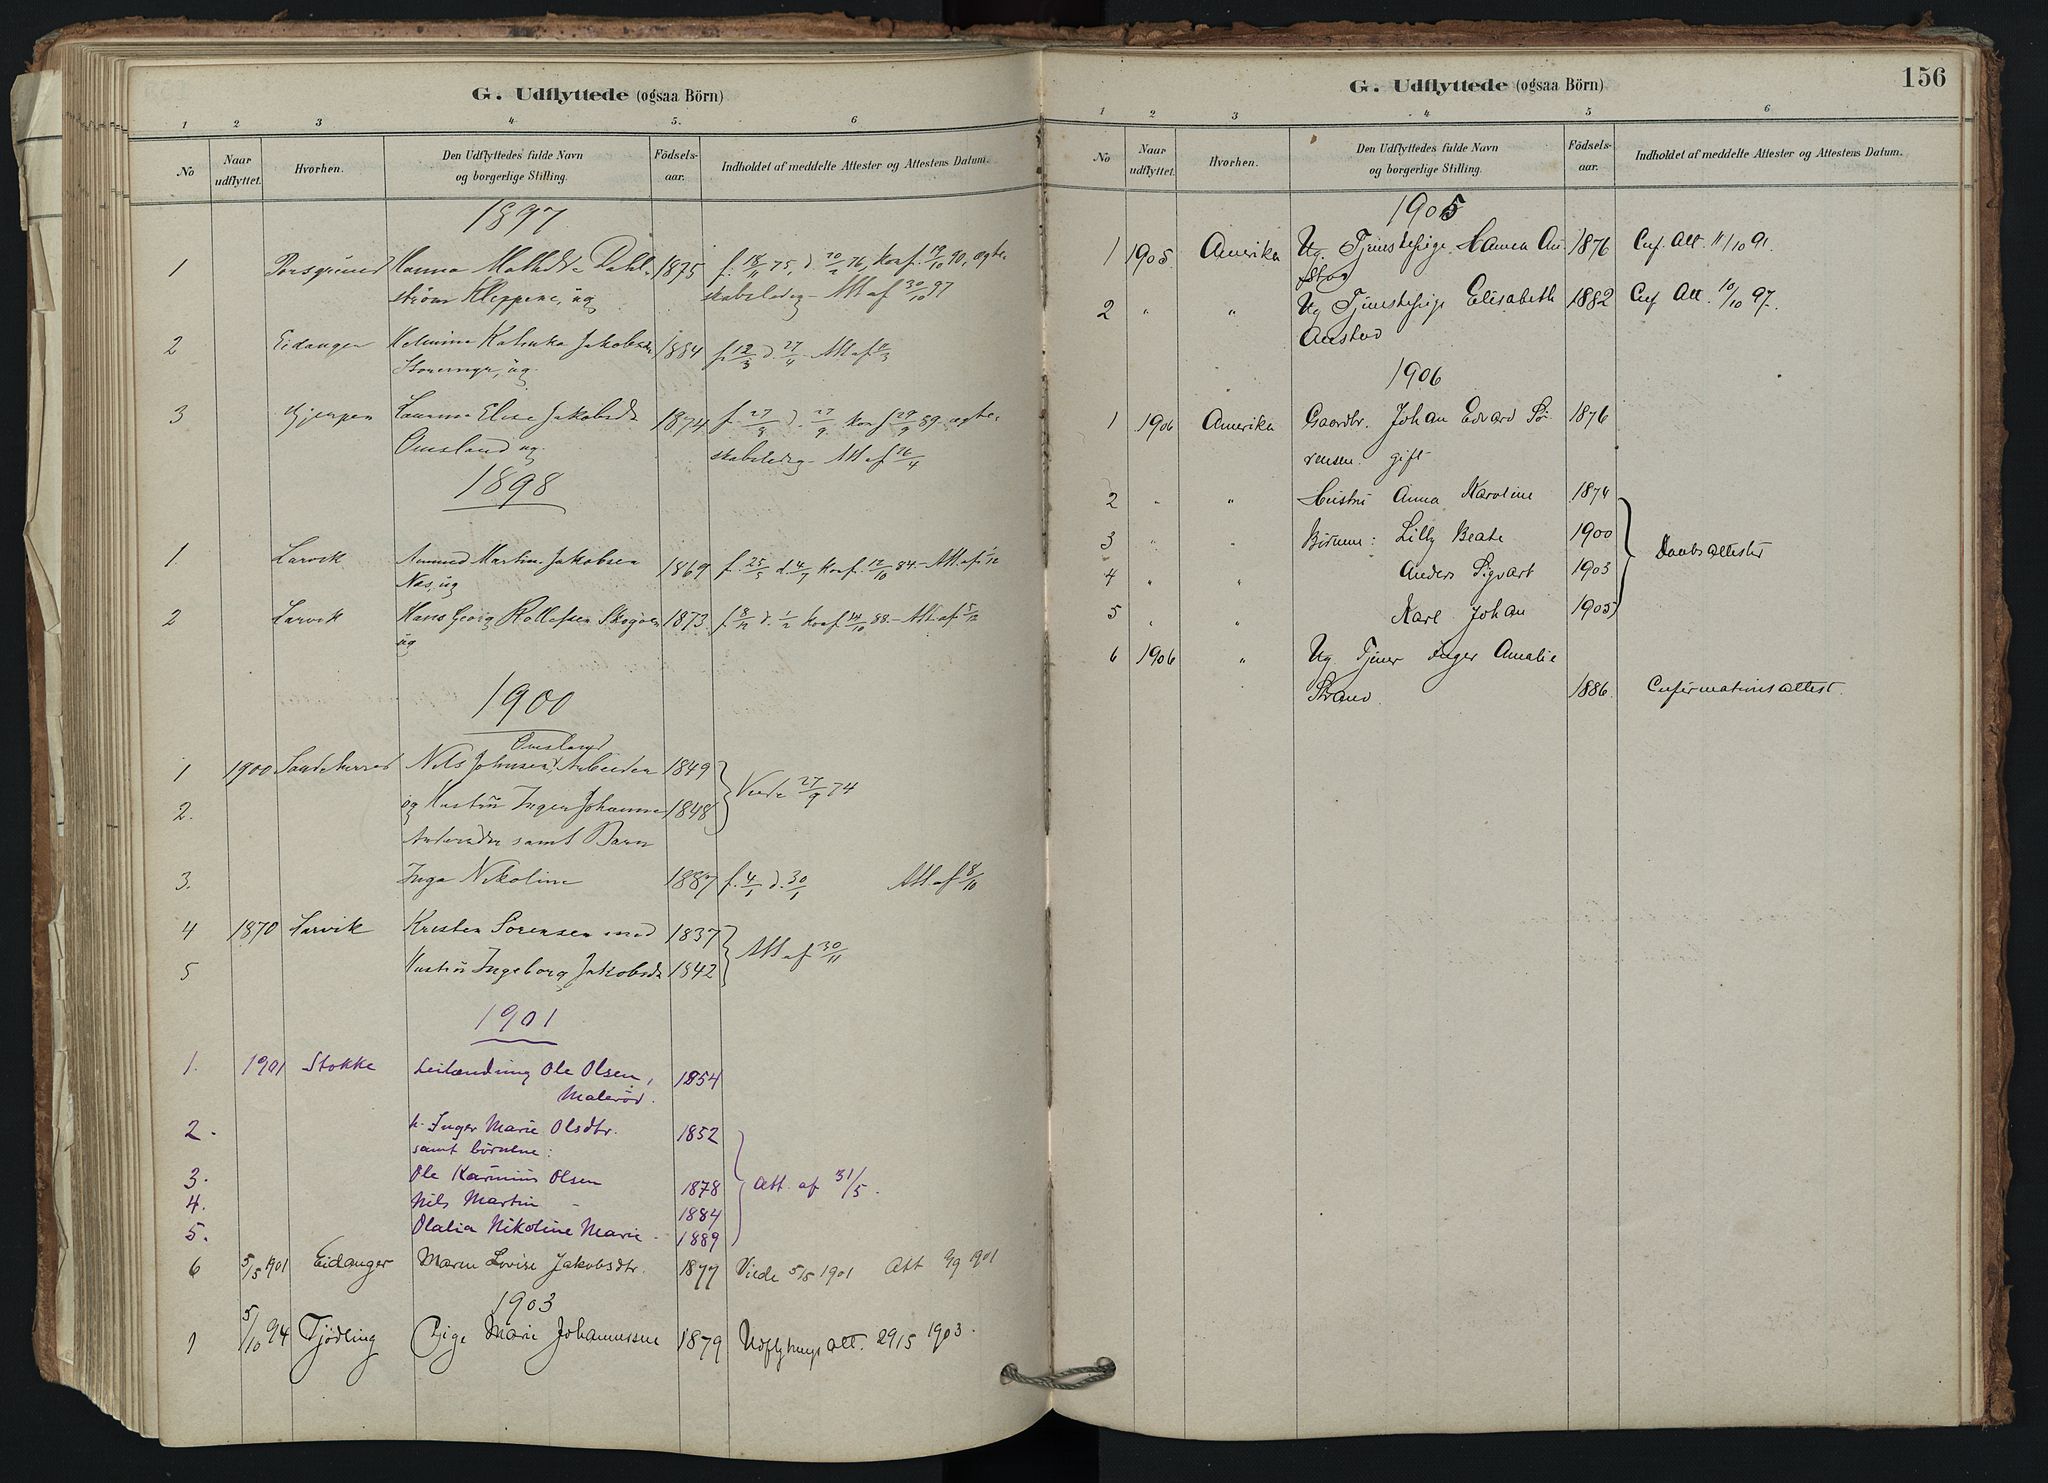 G. Udflyttede (ogsaa Börn)
1 2 3 4 5. 6
No Naar udflyttet. Hvorhen. Den Udflyttedes fulde Navn og borgerlige Stilling. Födsels-aar. Indholdet af meddelte Attester og Attestens Datum.
1897
1 Porsgrund Hanna Mathilde Dahl- 1875 f. 18/11 75, d. 20/2 76, konf. 19/10 90, ægte-
strøm Kleppene, ug skabsledig - Att af 30/10 97
2 Eidanger Helmine Katinka Jakobsdr 1884 f. 12/3 d. 27/4 - Att af
ug.
3 Gjerpen Laurine Elise Jakobsdr 1874 f. 27/8 d. 27/9 konf 29/9 89 ægte-
Omsland ug. skabsledig - Att af 16/4
1898
1 Larvik Martin Jakobsen 1869 f. 25/5 d. 4/7 Konf. 12/10 84 - Att. af 1/12
Næs, ug
2 Larvik Hans Georg Rollefsen Skogen 1873 f. 8/12 d. 1/2 konf. 14/10 88 - Att. af 5/12
ug
1900
Omsland
1 1900 Sandeherred Nils Johnsen, Arbeider 1849 Viede 27/9 74
2. og Hustru Inger Johanne 1848
Andersdr samt Barn
3. Inga Nikoline 1887 f. 4/1 d. 30/1 Att. af 8/10
4 1870 Larvik Kristen Sørensen med 1837 Att af 30/11
5 Hustru Ingeborg Jakobsdr 1842
1901
1. 1901 Stokke Leilænding Ole Olsen, 1854
Malerød.
2. h. Inger Marie Olsdtr. 1852
samt børnene:
3. Ole Karinius Olsen 1878 Att. af 31/5.
4. Nils Martin - 1884
5. Olalia Nikoline Marie - 1889
6 5/5 1901 Eidanger Maren Lovise Jakobsdtr. 1877 Viede 5/5 1901 Att 9/9 1901
1903
1 5/10 94 Tjödling Pige Marie Johannessen 1879 Udflytnings att. 29/5 1903.
G. Udflyttede (ogsaa Börn)
156
1 2 3 4 5 6
No Naar udflyttet. Hvorhen. Den Udflyttedes fulde Navn og borgerlige Stilling. Födsels-aar. Indholdet af meddelte Attester og Attestens Datum.
1905
1 1905 Amerika Ug. Tjenestepige Hanna An- 1876 Cnf. Att. 11/10 91.
stad
2 " " Ug Tjenestepige Elisabeth 1882 Cnf Att. 10/10 97.
Anstad
1906
1 1906 Amerika Gaardbr. Johan Edvard Sø- 1876
rensen. gift
2 " " Hustru Anna Karoline 1874
3 " " Børnene: Lilly Beate 1900 Daabsattester
4 " " Anders Sigvart 1903
5 " " Karl Johan 1905
6 1906 " Ug. Tjener Inger Amalie
Strand 1886. Cnfirmationsattest.